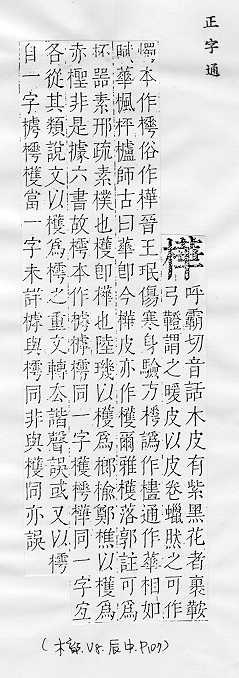 正字通
樺
呼霸切音話木皮有紫黑花者裹鞍
弓鞾謂之暖皮以皮卷蠟肰之可作
燭本作樗俗作樺晉王珉傷寒身驗方樗譌作櫨通作華相如
賦華楓枰櫨師古曰華卽今樺皮亦作檴爾雅檴落郭註可爲
杯器素邢疏素樸也檴卽樺也陸璣以檴爲榔榆鄭樵以檴爲
赤檉非是據六書故樗本作樗樗同一字檴樗樺同一字
各從其類說文以檴爲樗之重文轉厺諧聲誤或又以樗
自一字樗檴當一字未詳樗與樗同非與檴同亦誤
(木部.V8.辰中.P109)